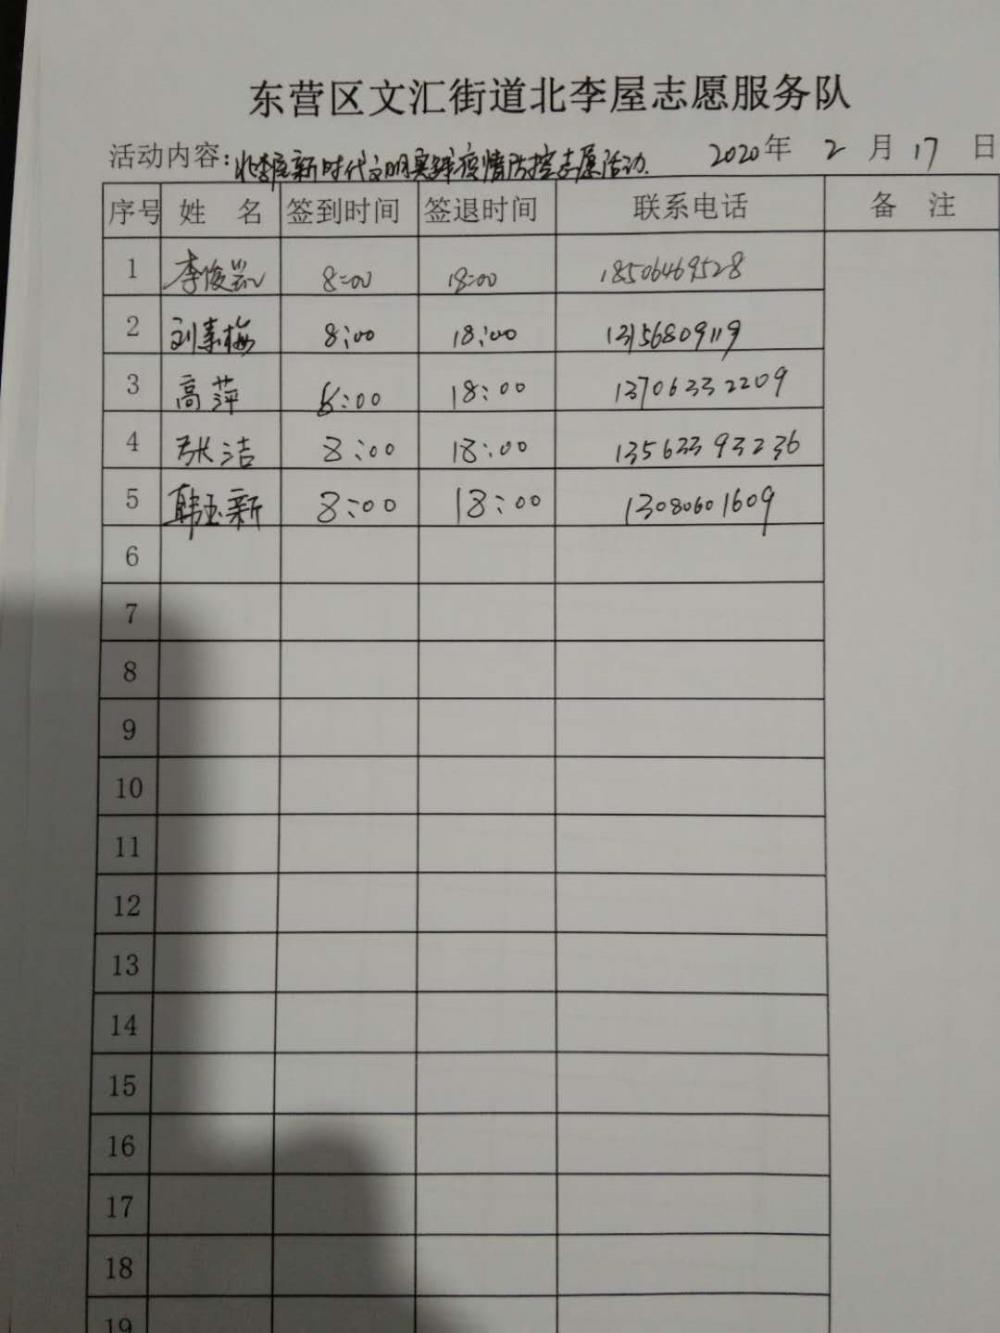 东营区文汇街道北李屋志愿服务队
活动内容：北李屋新时代文明实践疫情防控志愿活动. 2020年 2 月 17 日
序号 姓 名 签到时间 签退时间 联系电话 备 注
1 李俊凯 8:00 18:00 18506469528
2 刘素梅 8:00 18:00 13156809119
3 高萍 8:00 18:00 13706332209
4 张洁 8:00 18:00 13563393236
5 韩玉新 8:00 18:00 13080601609
6
7
8
9
10
11
12
13
14
15
16
17
18
19